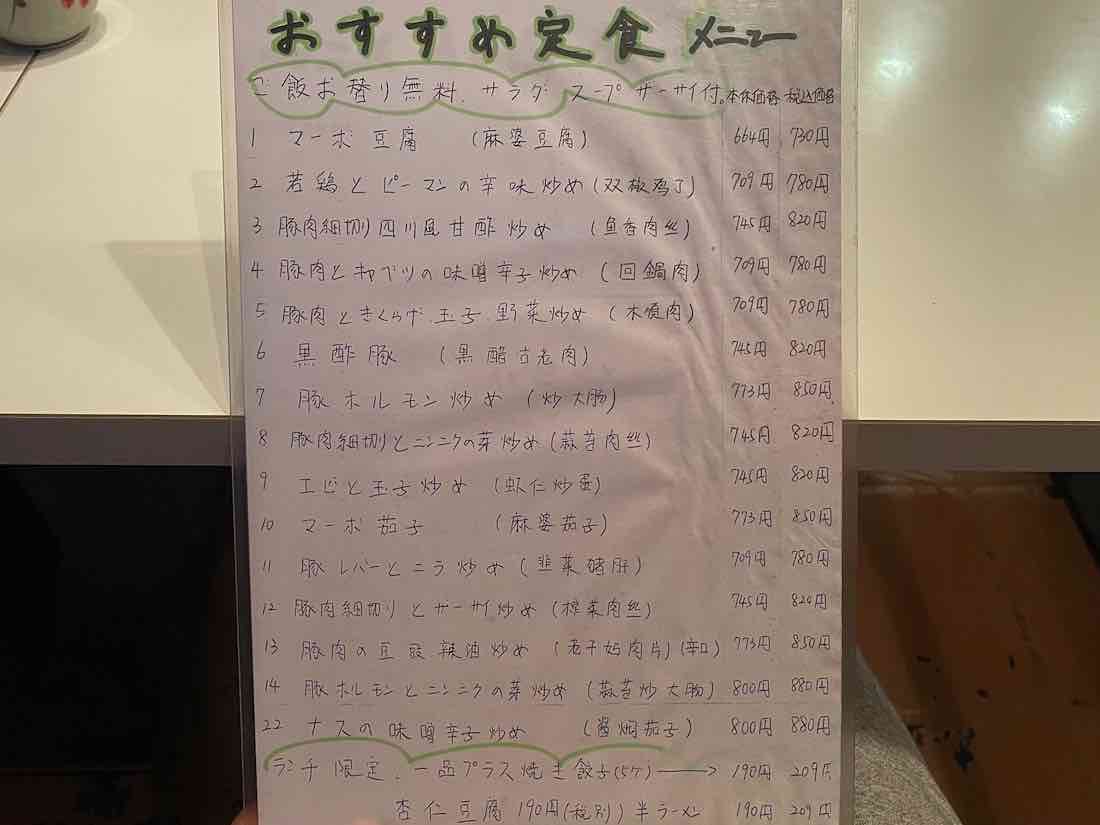 おすすめ定食 メニュー
ご飯お替り無料、サラダ スープ ザーサイ付。本体価格 税込価格
1 マーボ豆腐 (麻婆豆腐) 664円 730円
2 若鶏とピーマンの辛味炒め (双椒鸡丁) 709円 780円
3 豚肉細切り四川風甘酢炒め (鱼香肉丝) 745円 820円
4 豚肉とキャベツの味噌辛子炒め (回鍋肉) 709円 780円
5 豚肉ときくらげ.玉子.野菜炒め (木須肉) 709円 780円
6 黒酢豚 (黒醋古老肉) 745円 820円
7 豚ホルモン炒め (炒大肠) 773円 850円
8 豚肉細切りとニンニクの菜炒め (蒜苔肉丝) 745円 820円
9 エビと玉子炒め (虾仁炒蛋) 745円 820円
10 マーボ茄子 (麻婆茄子) 773円 850円
11 豚レバーとニラ炒め (韭菜猪肝) 709円 780円
12 豚肉細切りとザーサイ炒め (榨菜肉丝) 745円 820円
13 豚肉の豆豉辣油炒め (老干妈肉片) (辛口) 773円 850円
14 豚ホルモンとニンニクの菜炒め (蒜苔炒大肠) 800円 880円
22 ナスの味噌辛子炒め (酱焖茄子) 800円 880円
ランチ限定、一品プラス焼き餃子(5ケ) → 190円 209円
杏仁豆腐 190円(税別) 半ラーメン 190円 209円